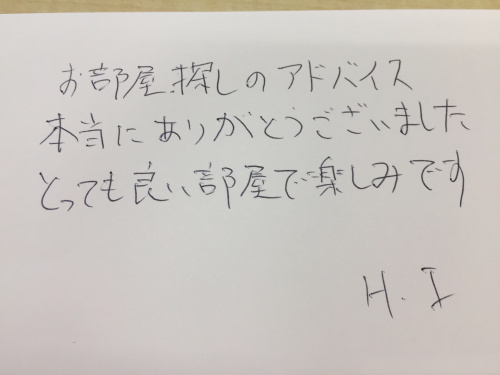 お部屋探しのアドバイス
本当にありがとうございました
とっても良い部屋で楽しみです
H. I